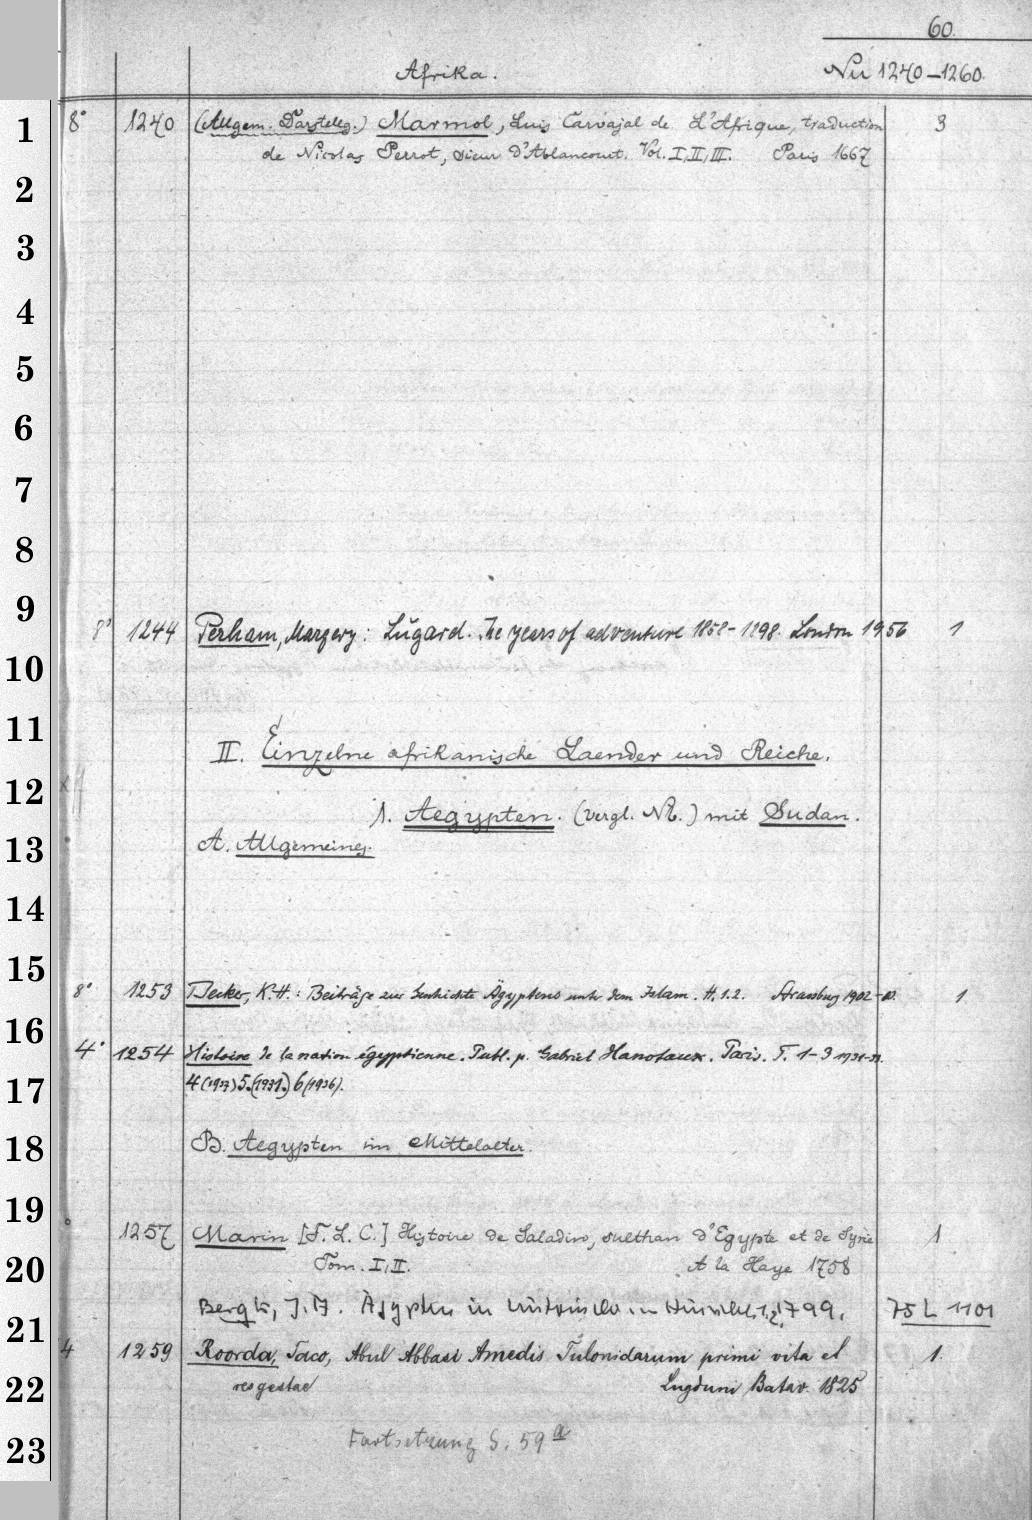 60.
Afrika. Nu 1240-1260.
1 8° 1240 (Allgem. Darstellg.) Marmol, Luis Carvajal de L'Afrique, traduction 3
de Nicolas Perrot, sieur d'Ablancourt. Vol. I, II, III. Paris 1667
2
3
4
5
6
7
8
9
8° 1244 Perham, Margery: Lugard. The years of adventure 1858-1898. London 1956 1
10
11
II. Einzelne afrikanische Laender und Reiche.
12
1. Aegypten. (vergl. ) mit Sudan.
13 A. Allgemeines.
14
15
8° 1253 Becker, K.H.: Beiträge zur Geschichte Ägyptens unter dem Islam. H. 1.2. Strassburg 1902-03. 1
16
4° 1254 Histoire de la nation égyptienne. Publ. p. Gabriel Hanotaux. Paris. T. 1-3 1931-33.
17 4 (1937) 5. (1931.) 6 (1936).
18 B. Aegypten im Mittelalter.
19
1257 Marin [F. L. C.] Histoire de Saladin, sulthan d'Egypte et de Syrie 1
20 Tom. I, II. A la Haye 1758
Bergk, J. A. Ägypten in historischer Hinsicht. 1799. 75 L 1101
21
4 1259 Roorda, Taco, Abul Abbasi Amedis Tulonidarum primi vita et 1.
22 res gestae Lugduni Batav. 1825
Fortsetzung S. 59 a
23